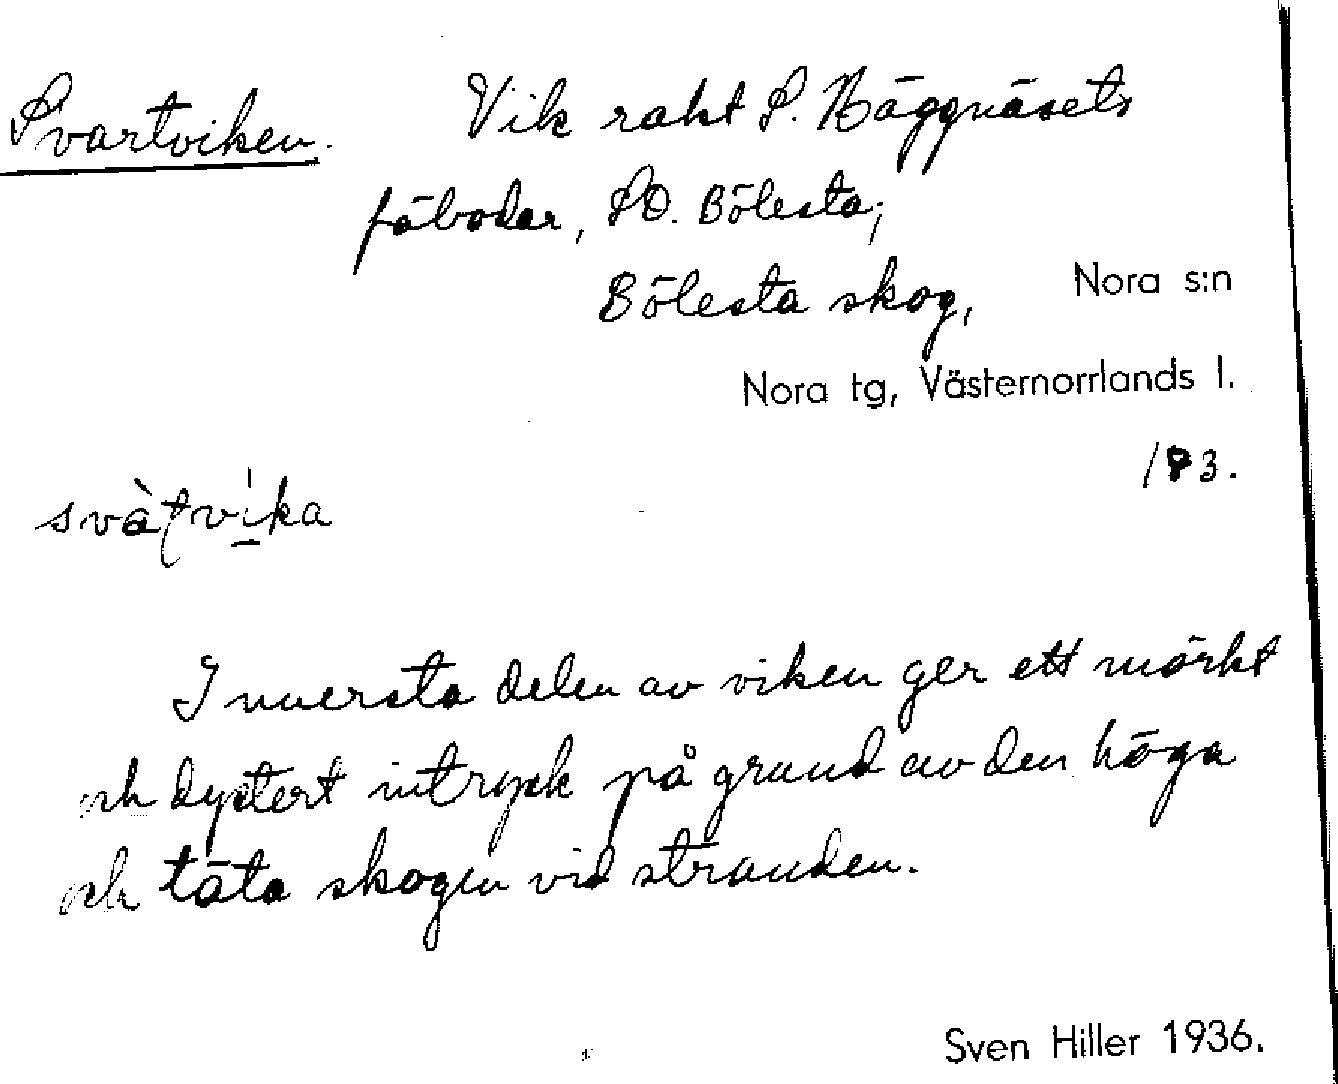 Svartviken. Vik rakt S. Häggnäsets
fäbodar, SO. Bölesta;
Bölesta skog, Nora s:n
Nora tg, Västernorrlands l.
193.
svàtvi̱ka
Innersta delen av viken ger ett mörkt
och dystert intryck på grund av den höga
och täta skogen vid stranden.
Sven Hiller 1936.